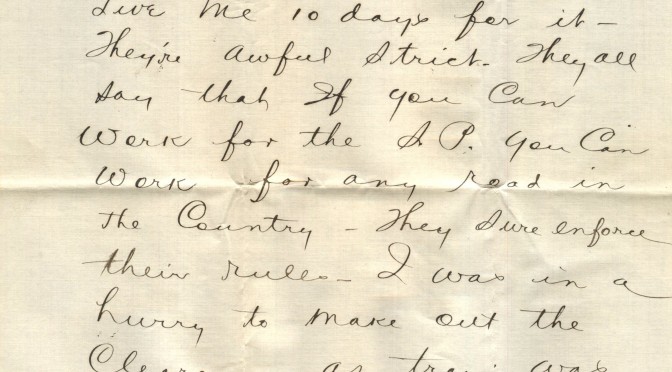 Give me 10 days for it –
They're awful strict. They all
say that If you Can
Work for the S P. you Can
Work for any road in
the Country – They sure enforce
their rules – I was in a
hurry to make out the
as train was